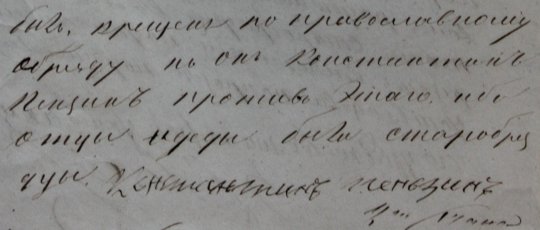 былъ крещенъ по православному
обряду но онъ Константинъ
Пенzинъ противъ этаго ибо
отцы и деды были старообряд
цы. Константинъ Пензинъ